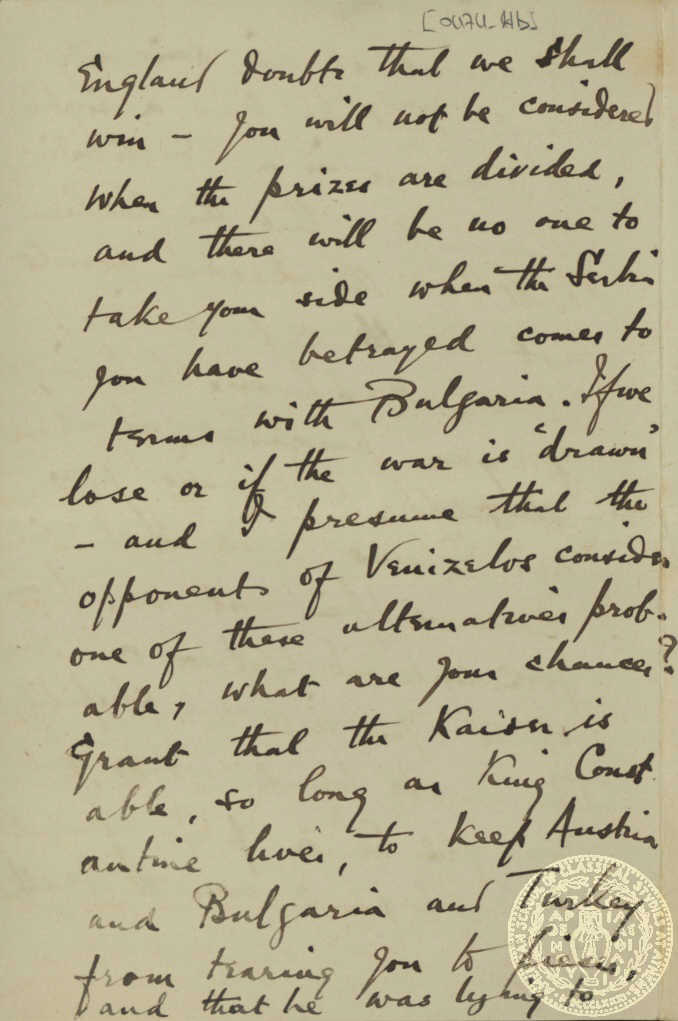 [0474-Hb]
England doubts that we shall
win – you will not be considered
when the prizes are divided,
and there will be no one to
take your side when the Serbia
you have betrayed comes to
terms with Bulgaria. If we
lose or if the war is 'drawn'
– and I presume that the
opponents of Venizelos consider
one of these alternatives prob-
able, what are your chances?
Grant that the Kaiser is
able, so long as King Const
antine lives, to keep Austria
and Bulgaria and Turkey
from tearing you to pieces,
and that he was lying to